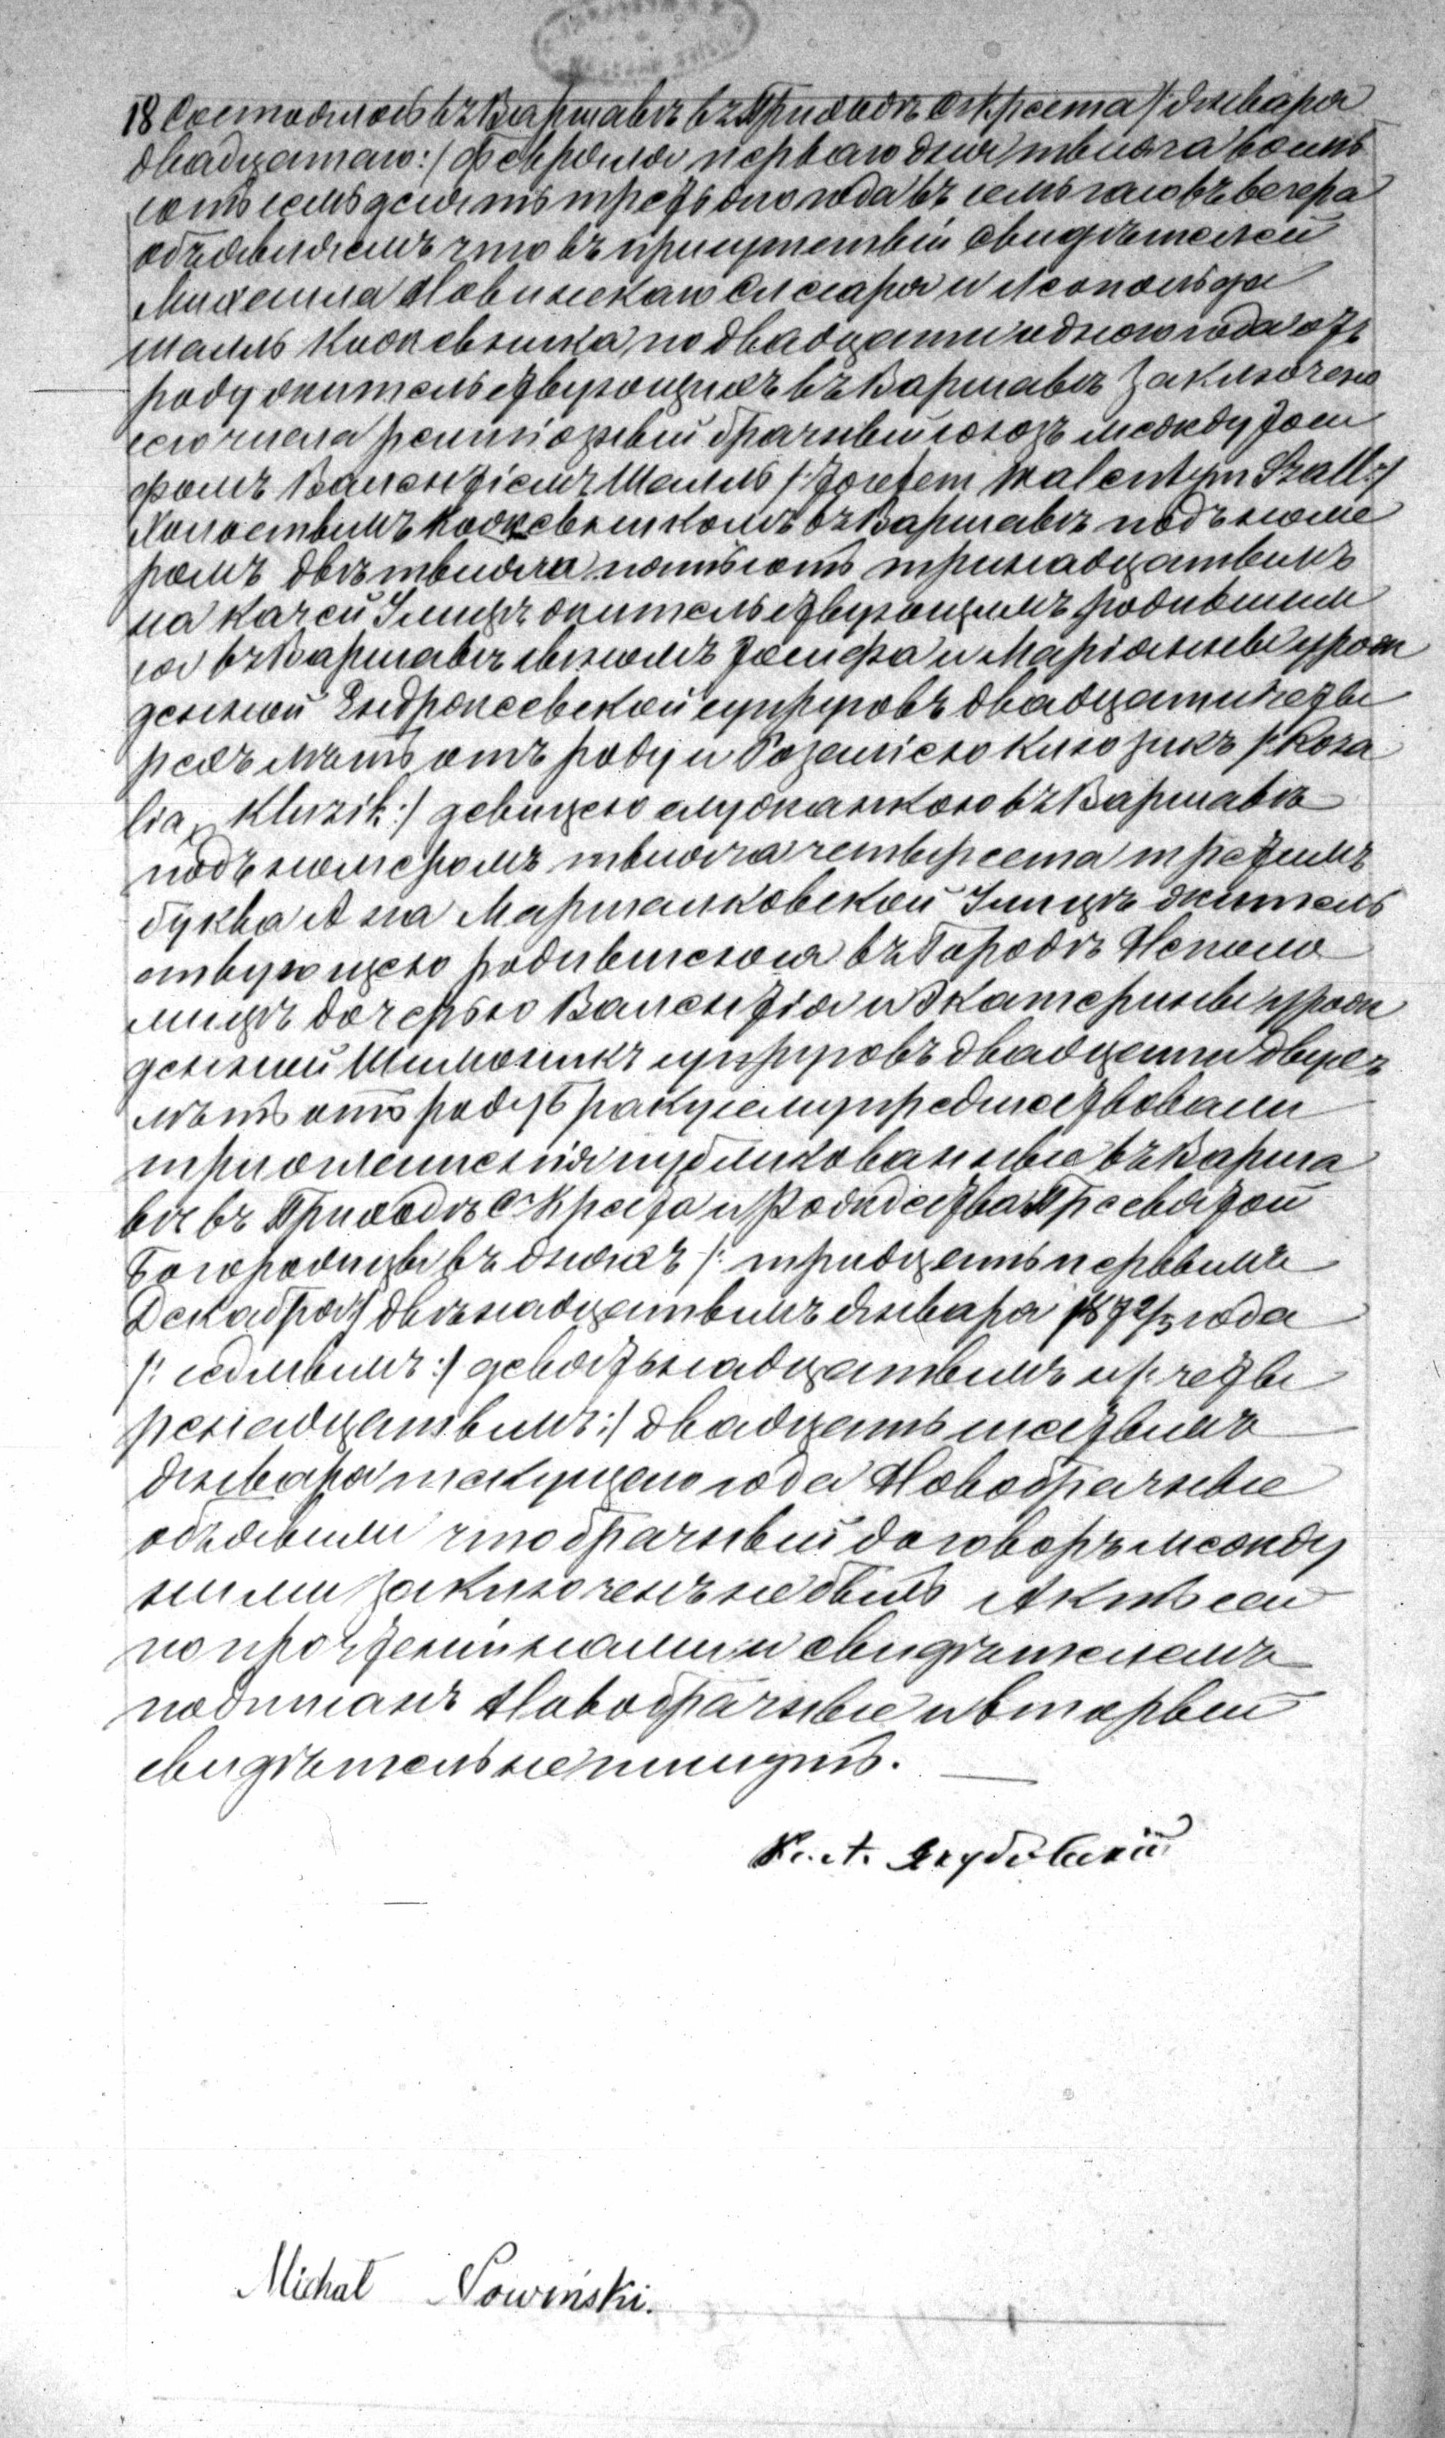 18 Состоялось въ Варшавѣ въ Приходѣ С Креста /: Января
двадцатаго :/ Февраля перваго дня тысяча восемь
сотъ семьдесятъ третьяго года въ семь часовъ вечера
объявляемъ что въ присутствіи свидѣтелей
Михаила Новинскаго Слесаря и Леопольда
Шалль Кожевника по двадцати одного года отъ
роду жительствующихъ въ Варшавѣ заключено
сего числа религіозный брачный союзъ между Іоси
фомъ Валентіемъ Шалль /: Józefem Walentym Szall :/
Холостымъ Кожевникомъ въ Варшавѣ подъ номе
ромъ двѣ тысяча пятьсотъ тринадцатымъ
на Качей Улицѣ жительствующимъ родившим
ся въ Варшавѣ сыномъ Іосифа и Маріанны урож
денной Ендржеевской супруговъ двадцати четы
рехъ лѣтъ отъ роду и Розаліею Клюзикъ /: Roza
lią Kluzik :/ девицею служанкою въ Варшавѣ
подъ номеромъ тысяча четыреста третимъ
буква А на Маршалковской Улицѣ житель
ствующею родившеюся въ Городѣ Неполо
мицѣ дочерью Валентія и Екатерины урож
денной супруговъ двадцати двухъ
лѣтъ отъ роду Браку сему предшествовали
три оглашенія публикованные въ Варша
вѣ въ Приходѣ С Креста и Рождества Пресвятой
Богородицы въ дняхъ /: тридцать первымъ
Декабря :/ двѣнадцатымъ Января 1872/3 года
/: седмымъ :/ девятьнадцатымъ и /: четы
ренадцатымъ :/ двадцать шестымъ
Января текущего года Новобрачные
объявили что брачный договоръ между
ними заключенъ не былъ Актъ сей
по прочтеніи нами и свидѣтелемъ
подписанъ Новобрачные и вторый
свидѣтель не пишутъ.
Кс. А. Якубовскій
Michał Nowiński.